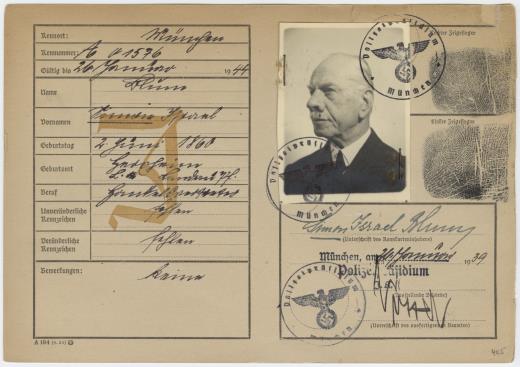 Kennort: München
Kennummer: A 01536
Gültig bis 26 Januar 1944
Name Blum
Vornamen Simon Israel
Geburtstag 2 Juni 1860
Geburtsort Herxheim
b. Landau
Beruf
Unveränderliche Kennzeichen fehlen
Veränderliche Kennzeichen fehlen
Bemerkungen: Keine
A 194
Polizeipräsidium
München
Rechter Zeigefinger
Linker Zeigefinger
Polizeipräsidium
München
Simon Israel Blum
(Unterschrift des Kennkarteninhabers)
München, am 26. Januar 1939
Polizeipräsidium
J.A.
(Ausstellende Behörde)
(Unterschrift des ausfertigenden Beamten)
Polizeipräsidium
München